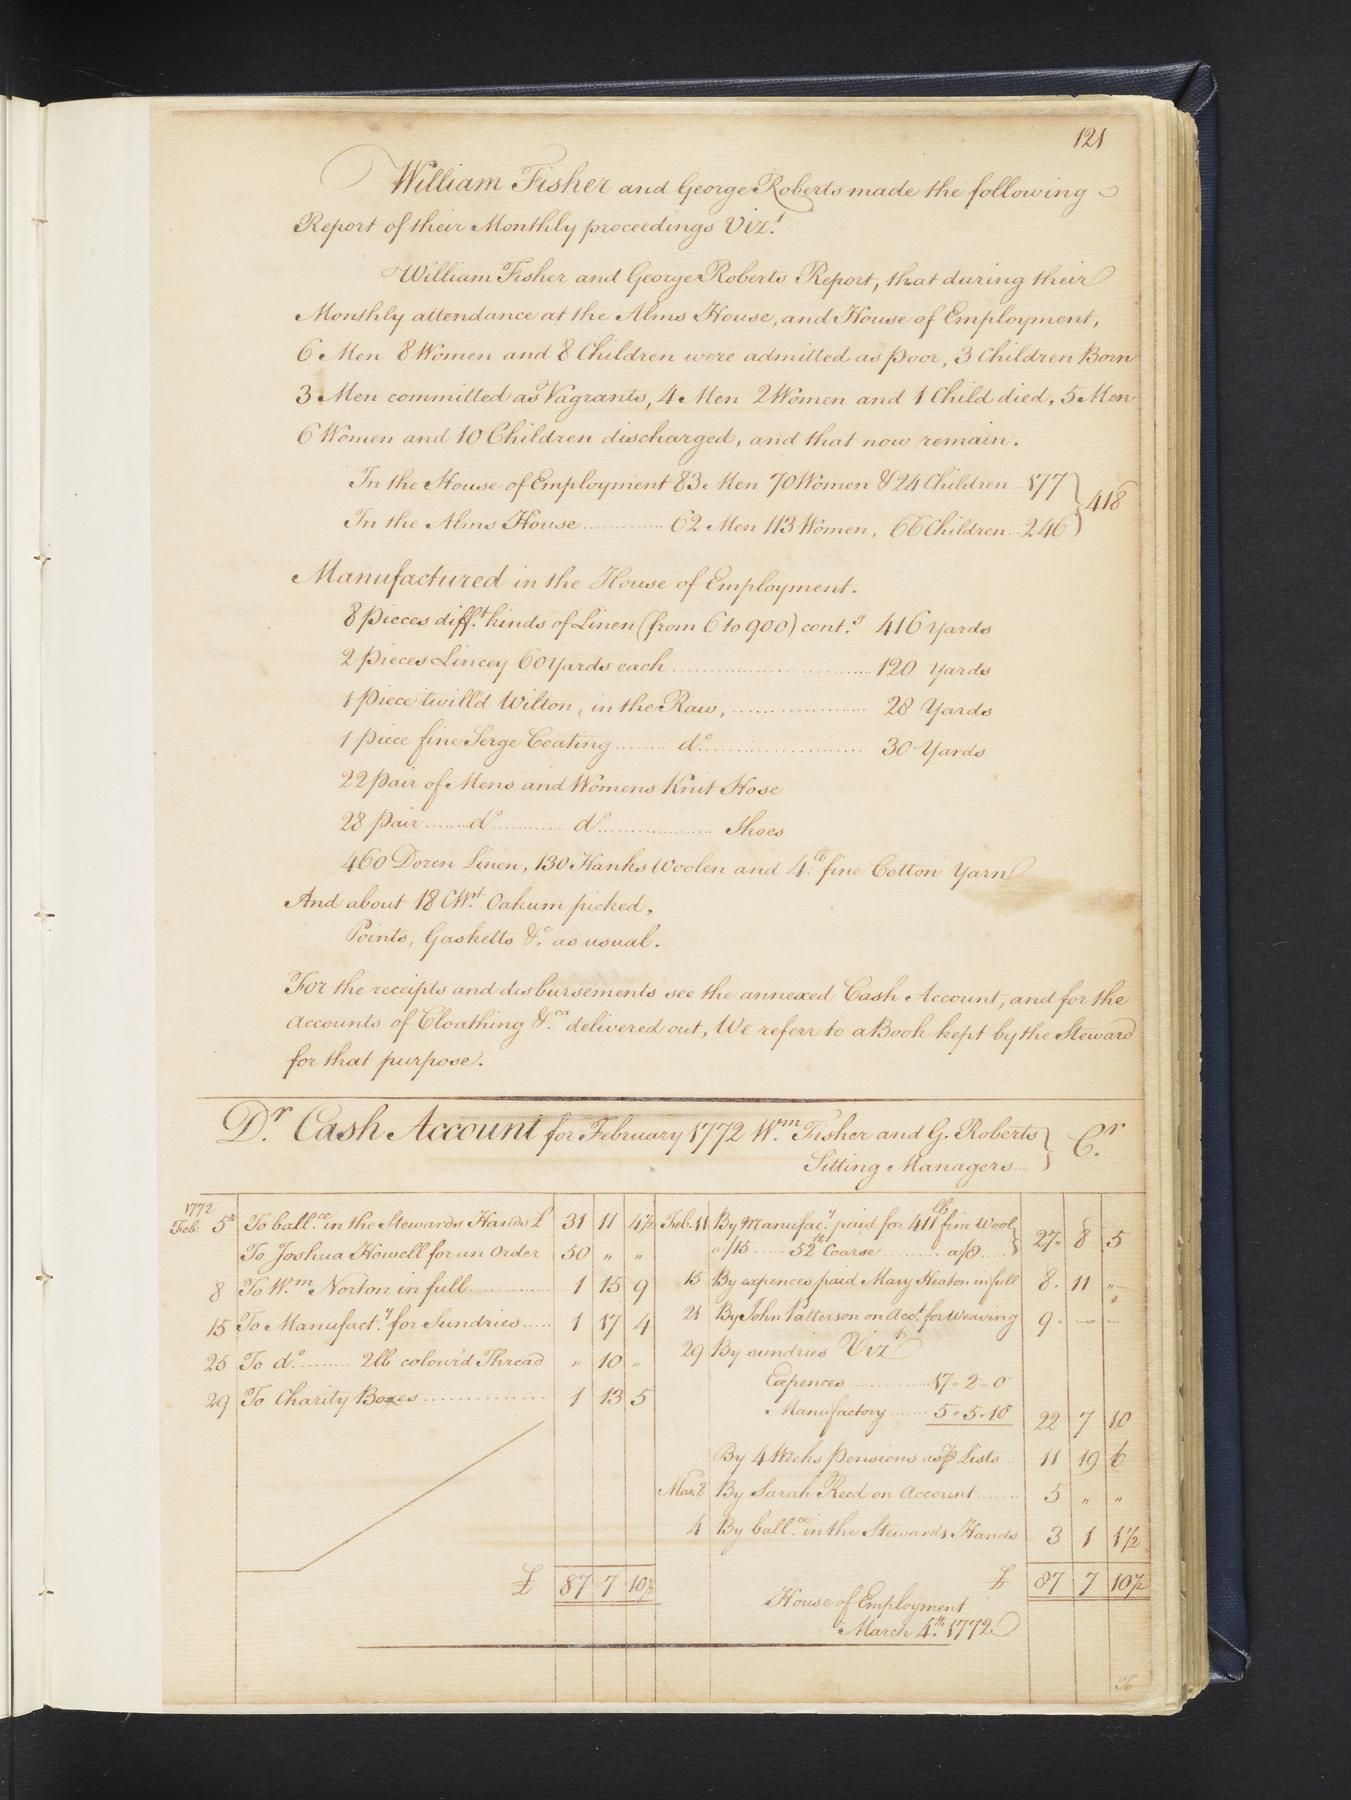 121
William Fisher and George Roberts made the following
Report of their Monthly proceedings Vizt.
William Fisher and George Roberts Report, that during their
Monthly attendance at the Alms House, and House of Employment,
6 Men 8 Women and 8 Children were admitted as Poor, 3 Children Born
3 Men committed as Vagrants, 4 Men 2 Women and 1 Child died, 5 Men
6 Women and 10 Children discharged, and that now remain.
In the House of Employment 83 Men 70 Women & 24 Children 177
In the Alms House 62 Men 113 Women, 66 Children 246 } 418
Manufactured in the House of Employment.
8 Pieces difft. kinds of Linen (from 6 to 900) contg. 416 Yards
2 Pieces Lincey 60 Yards each 120 Yards
1 Piece twill'd Wilton, in the Raw, 28 Yards
1 Piece fine Serge Coating do. 30 Yards
22 Pair of Mens and Womens Knit Hose
28 Pair do. do. Shoes
460 Dozen Linen, 130 Hanks Woolen and 4 lb fine Cotton Yarn
And about 18 CWt. Oakum picked,
Points, Gasketts &c. as usual.
For the receipts and disbursements see the annexed Cash Account, and for the
accounts of Cloathing &ca. delivered out, We referr to a Book kept by the Steward
for that purpose.
Dr. Cash Account for February 1772 Wm. Fisher and G. Roberts } Cr.
Sitting Managers
1772
Feb. 5th To ballce. in the Stewards Hands £ 31 11 4½
To Joshua Howell for an Order 50 " "
8 To Wm. Norton in full 1 15 9
15 To Manufacty. for Sundries 1 17 4
25 To do. 2lb colour'd Thread " 10 "
29 To Charity Boxes 1 13 5
£ 87 7 10½
Feb. 11 By Manufacy. paid for 411 lb fine Wool
a/15 52 lb Coarse a/8 } 27 8 5
15 By expences paid Mary Heaton in full 8 11 "
21 By John Patterson on Acct. for Weaving 9 - -
29 By sundries Vizt
Expences 17 " 2 " 0
Manufactory 5 " 5 " 10 22 7 10
By 4 Weeks Pensions as ⅌ Lists 11 19 6
Mar. 2 By Sarah Reed on Account 5 " "
4 By ballce. in the Stewards Hands 3 1 1½
£ 87 7 10½
House of Employment
March 4th. 1772
To